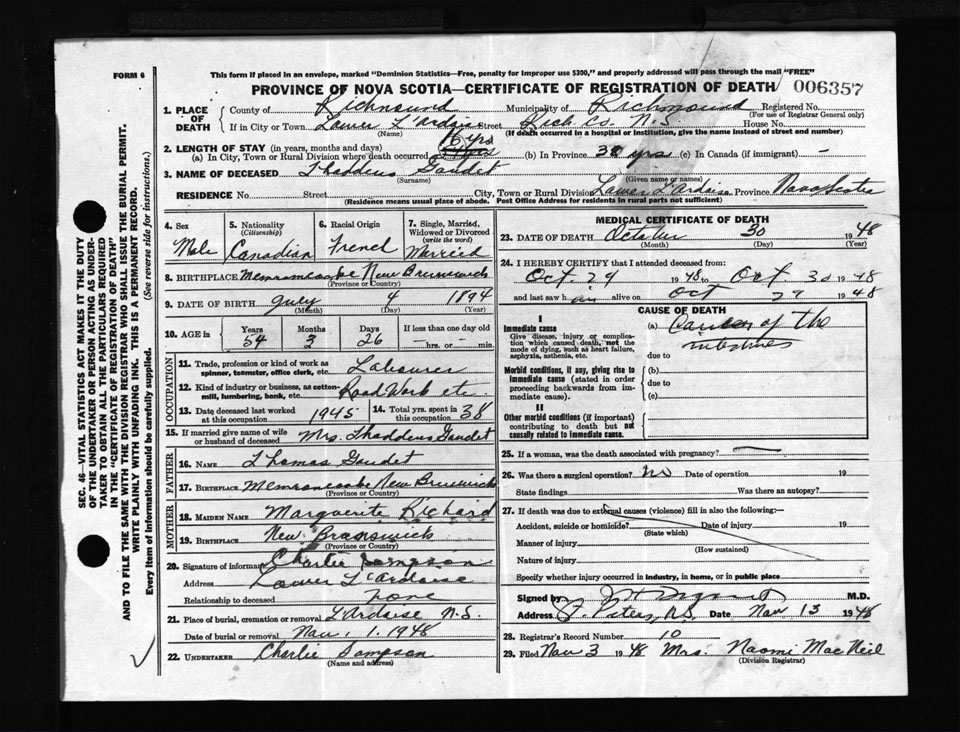 FORM 6
This form if placed in an envelope, marked "Dominion Statistics—Free, penalty for improper use $300," and properly addressed will pass through the mail "FREE"
PROVINCE OF NOVA SCOTIA—CERTIFICATE OF REGISTRATION OF DEATH 006357
1. PLACE OF DEATH
County of Richmound Municipality of Richmound Registered No.
(For use of Registrar General only)
If in City or Town Lower L'Ardoise Street Rich. Co. N.S House No.
(Name) (If death occurred in a hospital or institution, give the name instead of street and number)
2. LENGTH OF STAY (in years, months and days)
(a) In City, Town or Rural Division where death occurred 6 yrs (b) In Province 38 yrs (c) In Canada (if immigrant) —
3. NAME OF DECEASED Thaddeus Gaudet
(Surname) (Given name or names)
RESIDENCE No. Street City, Town or Rural Division Lower L'Ardoise Province Nova Scotia
(Residence means usual place of abode. Post Office Address for residents in rural parts not sufficient)
4. Sex
Male
5. Nationality
(Citizenship)
Canadian
6. Racial Origin
French
7. Single, Married, Widowed or Divorced
(write the word)
Married
8. BIRTHPLACE Memramcooke New Brunswick
(Province or Country)
9. DATE OF BIRTH July 4 1894
(Month) (Day) (Year)
10. AGE in
Years Months Days If less than one day
54 3 26 —hrs. or —min.
OCCUPATION
11. Trade, profession or kind of work as
spinner, teamster, office clerk, etc. Labourer
12. Kind of industry or business, as cotton-
mill, lumbering, bank, etc. Road Work etc.
13. Date deceased last worked
at this occupation 1945
14. Total yrs. spent in
this occupation 38
15. If married give name of wife
or husband of deceased Mrs. Thaddeus Gaudet
FATHER
16. NAME Thomas Gaudet
17. BIRTHPLACE Memramcooke New Brunswick
(Province or Country)
MOTHER
18. MAIDEN NAME Marguerite Richard
19. BIRTHPLACE New Branswick
(Province or Country)
20. Signature of informant Charlie Sampson
Address Lower L'Ardoise
Relationship to deceased none
21. Place of burial, cremation or removal L'Ardoise N.S.
Date of burial or removal Nov. 1. 1948
22. UNDERTAKER Charlie Sampson
(Name and address)
MEDICAL CERTIFICATE OF DEATH
23. DATE OF DEATH October 30 1948
(Month) (Day) (Year)
24. I HEREBY CERTIFY that I attended deceased from:
Oct. 29 1948 to Oct 30 1948
and last saw him alive on Oct 29 1948
CAUSE OF DEATH
I
Immediate cause
Give disease, injury or complication which caused death, not the mode of dying, such as heart failure, asphyxia, asthenia, etc.
(a) Cancer of the
intestines
due to
Morbid conditions, if any, giving rise to immediate cause (stated in order proceeding backwards from immediate cause).
(b)
due to
(c)
II
Other morbid conditions (if important) contributing to death but not causally related to immediate cause.
25. If a woman, was the death associated with pregnancy? —
26. Was there a surgical operation? no Date of operation 19
State findings Was there an autopsy?
27. If death was due to external causes (violence) fill in also the following:—
Accident, suicide or homicide? Date of injury 19
(State which)
Manner of injury
(How sustained)
Nature of injury
Specify whether injury occurred in industry, in home, or in public place
Signed by M.D.
Address St. Peters, N.S. Date Nov 13 1948
28. Registrar's Record Number 10
29. Filed Nov 3 1948 Mrs. Naomi MacNeil
(Division Registrar)
SEC. 46—VITAL STATISTICS ACT MAKES IT THE DUTY
OF THE UNDERTAKER OR PERSON ACTING AS UNDER-
TAKER TO OBTAIN ALL THE PARTICULARS REQUIRED
IN THE "CERTIFICATE OF REGISTRATION OF DEATH"
AND TO FILE THE SAME WITH THE DIVISION REGISTRAR WHO SHALL ISSUE THE BURIAL PERMIT.
WRITE PLAINLY WITH UNFADING INK. THIS IS A PERMANENT RECORD.
Every item of Information should be carefully supplied. (See reverse side for instructions.)